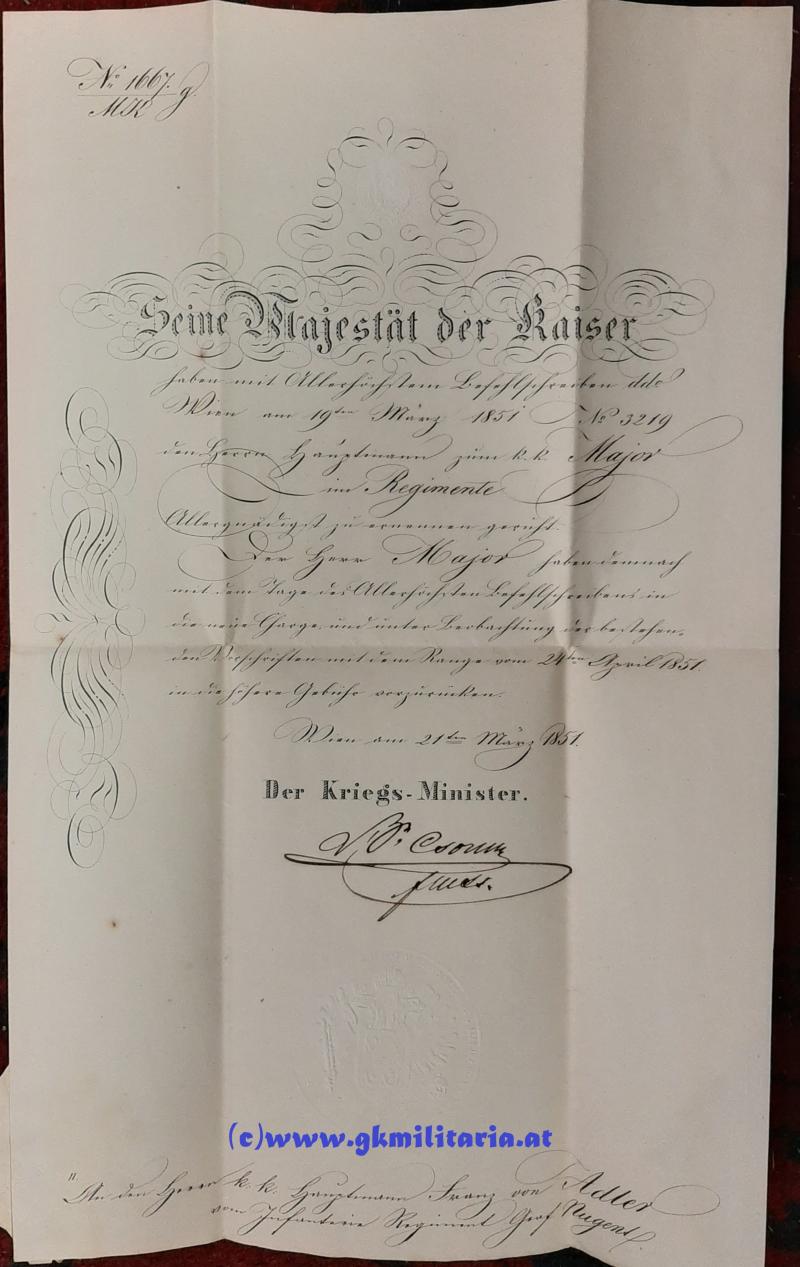 No 1667. g.
MK
Seine Majestät der Kaiser
haben mit Allerhöchstem Befehlschreiben ddo
Wien am 19ten März 1851 No 3219
den Herrn Hauptmann zum k. k. Major
im Regimente
Allergnädigst zu ernennen geruht.
Der Herr Major haben demnach
mit dem Tage des Allerhöchsten Befehlschreibens in
die neue Charge, und unter Beobachtung der bestehen-
den Vorschriften mit dem Range vom 24ten April 1851.
in die höhere Gebühr vorzurücken.
Wien am 21ten März 1851.
Der Kriegs-Minister.
Csorich
(c)www.gkmilitaria.at
An den Herrn k. k. Hauptmann Franz von Adler
vom Infanterie Regiment Graf Nugent.